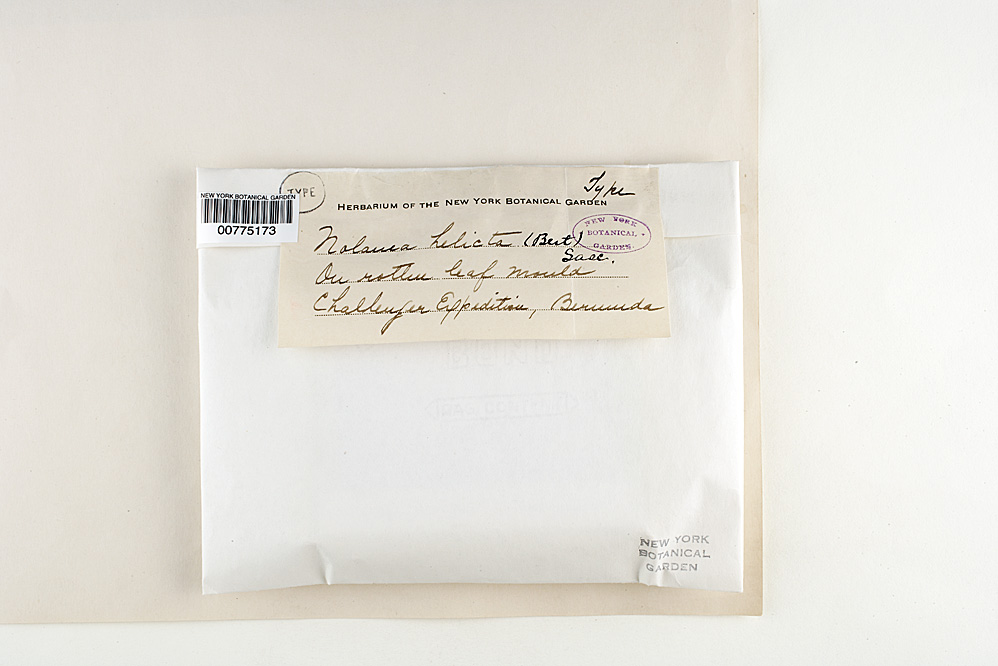 NEW YORK BOTANICAL GARDEN
00775173
TYPE
Type
HERBARIUM OF THE NEW YORK BOTANICAL GARDEN
NEW YORK
BOTANICAL
GARDEN.
Nolanea helicta (Berk)
Sacc.
On rotten leaf mould
Challenger Expedition, Bermuda
NEW YORK
BOTANICAL
GARDEN